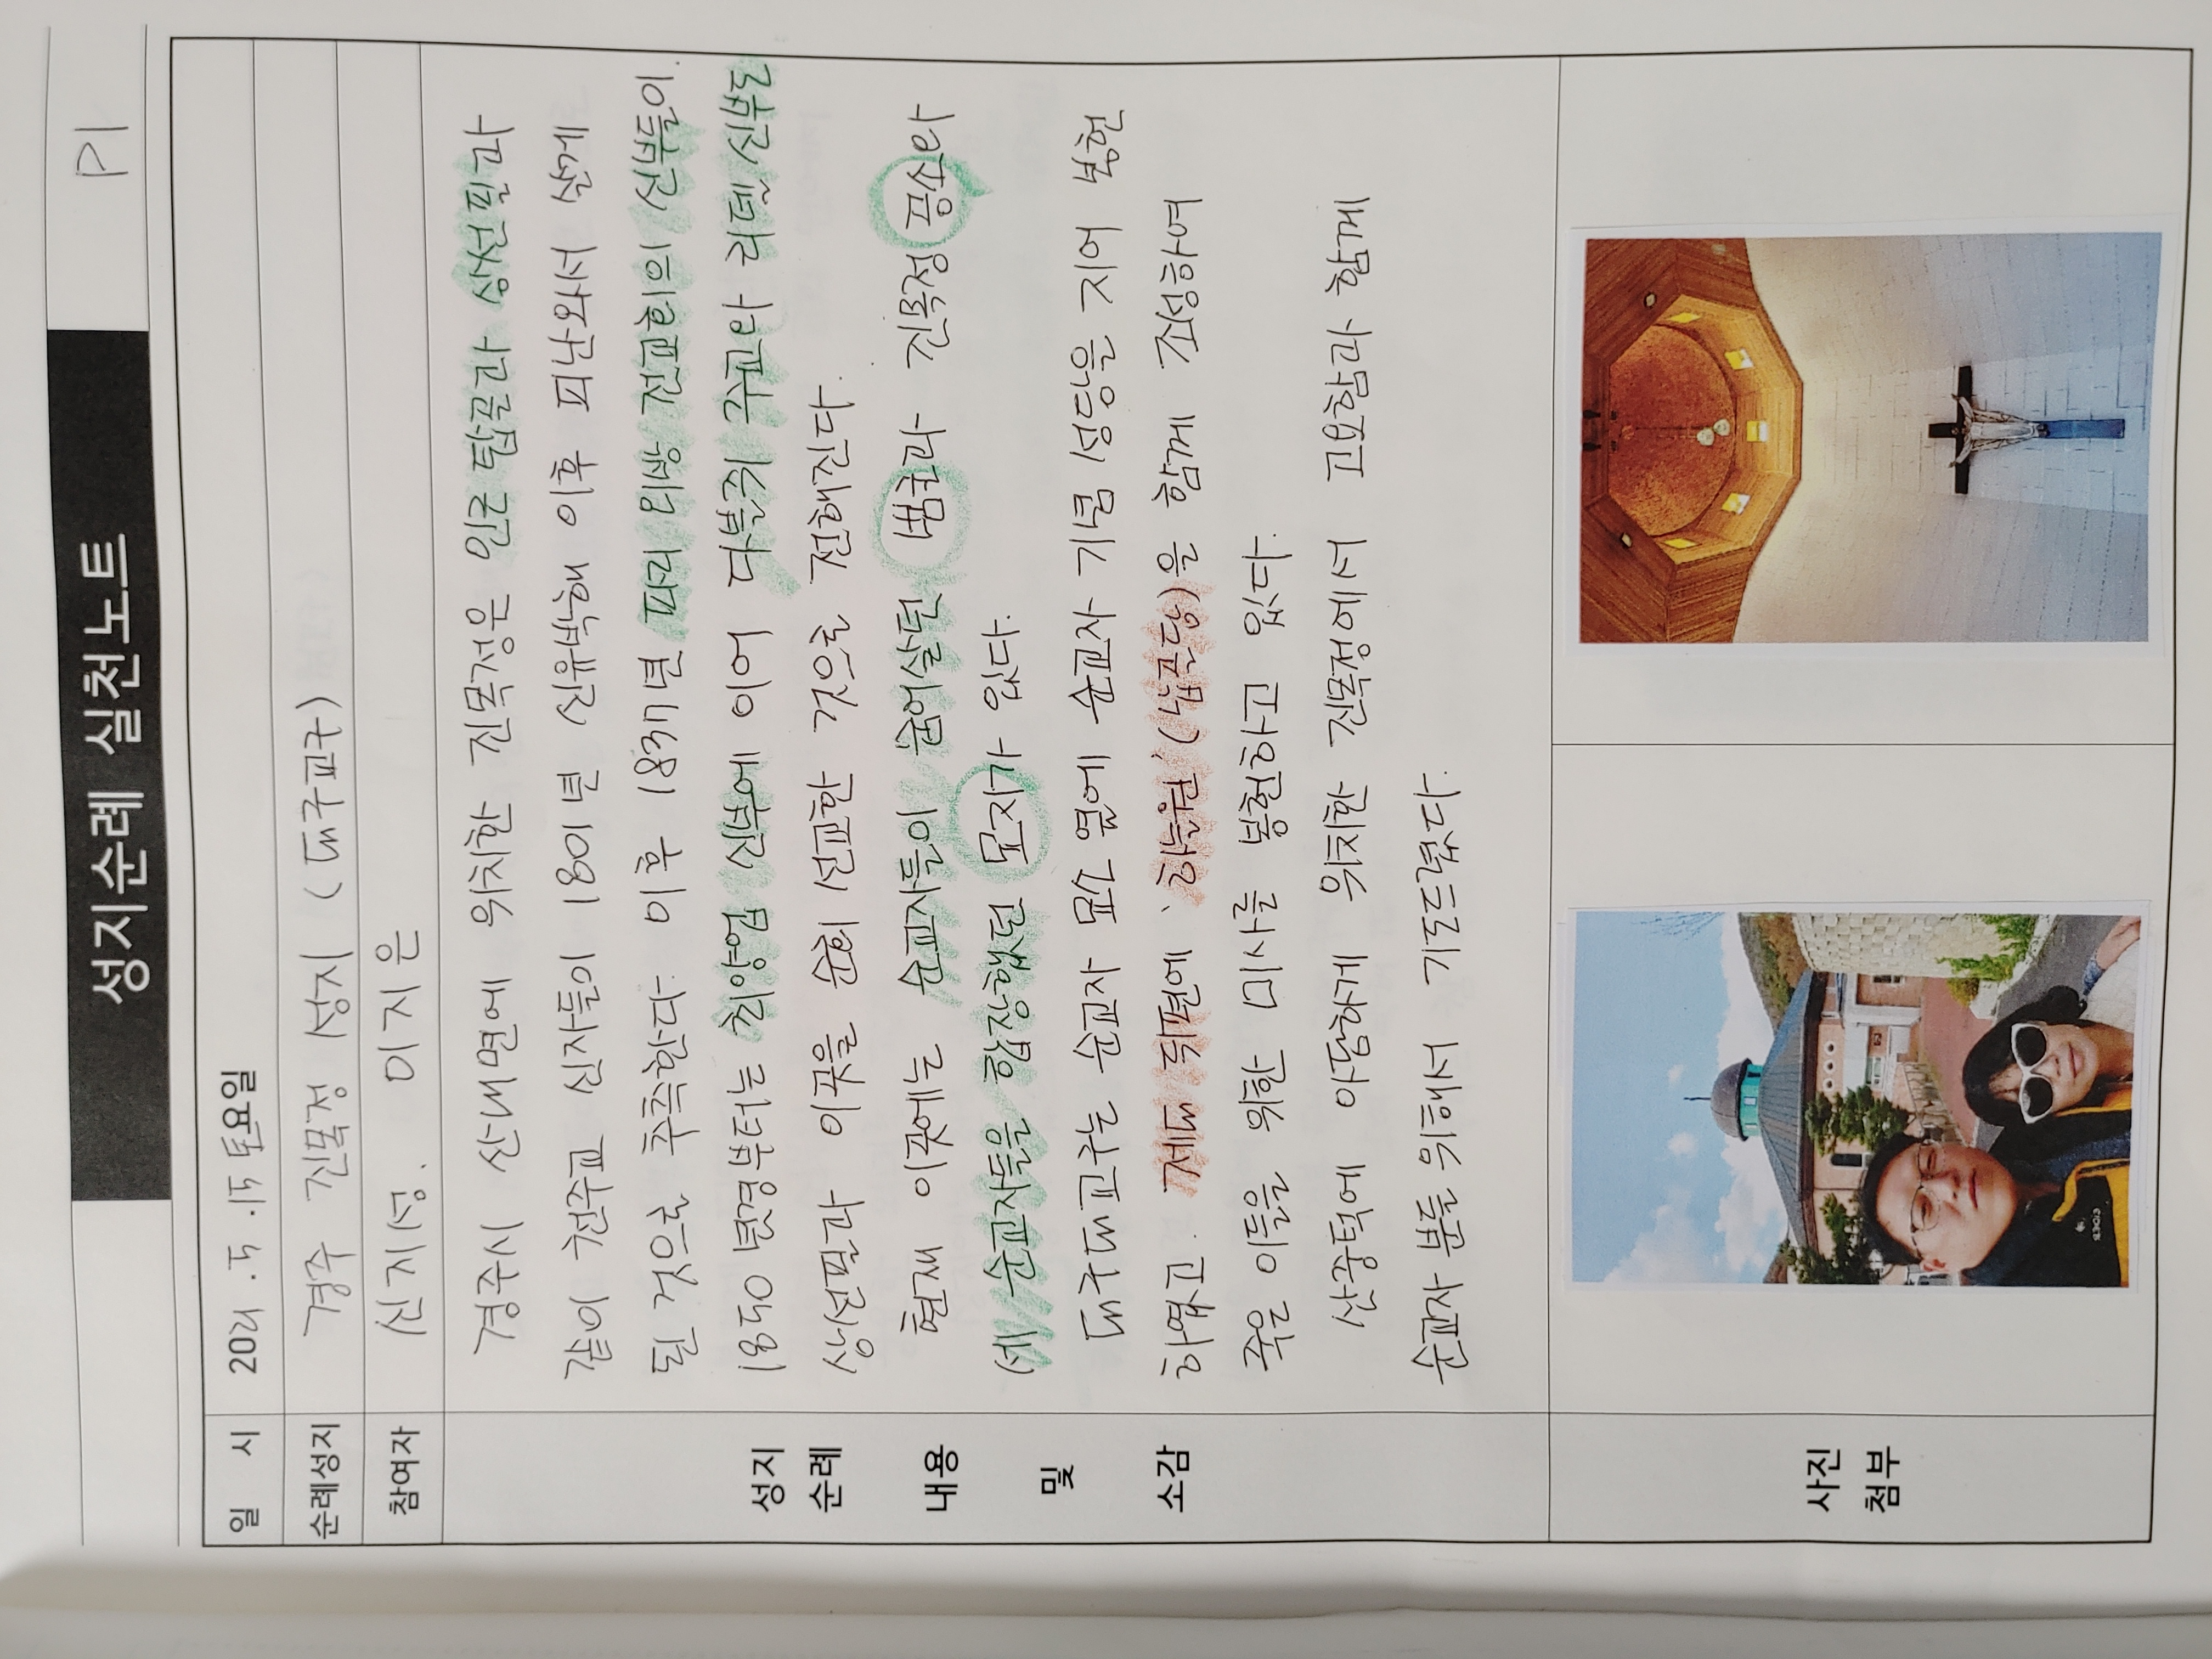 성지순례 실천노트
P1
일 시
2021 . 5 . 15 토요일
순례성지
경주 진목정 성지 (대구교구)
참여자
신지성. 이지은
성지
순례
내용
및
소감
경주시 산내면에 위치한 진목정은 인근 탑골과 상선필과
같이 천주교 신자들이 1801년 신유박해 이후 피난와서 살게
된 것으로 추측한다. 이후 1837년 파리 외방 전교회의 신부들이.
1850년경부터는 최양업 신부에 이어 다블뤼 주교와 리델 신부도
상선필과 이곳을 순회 선교한 것으로 전해진다.
현재 이곳에는 순교자들이 숨어살던 범굴과 진목정 공소와
세 순교자들을 합장했던 묘지가 있다.
대구대교구는 순교자 묘소 옆에 순교자 기념 성당을 지어 봉헌
하였고. 제대 뒤편에 '하늘원' (납골당)을 함께 조성하여
죽은 이들을 위한 미사를 봉헌하고 있다.
산중턱에 아담하게 위치한 진목정에서 고요함과 함께
순교자 분들 위해서 기도드렸다.
사진
첨부